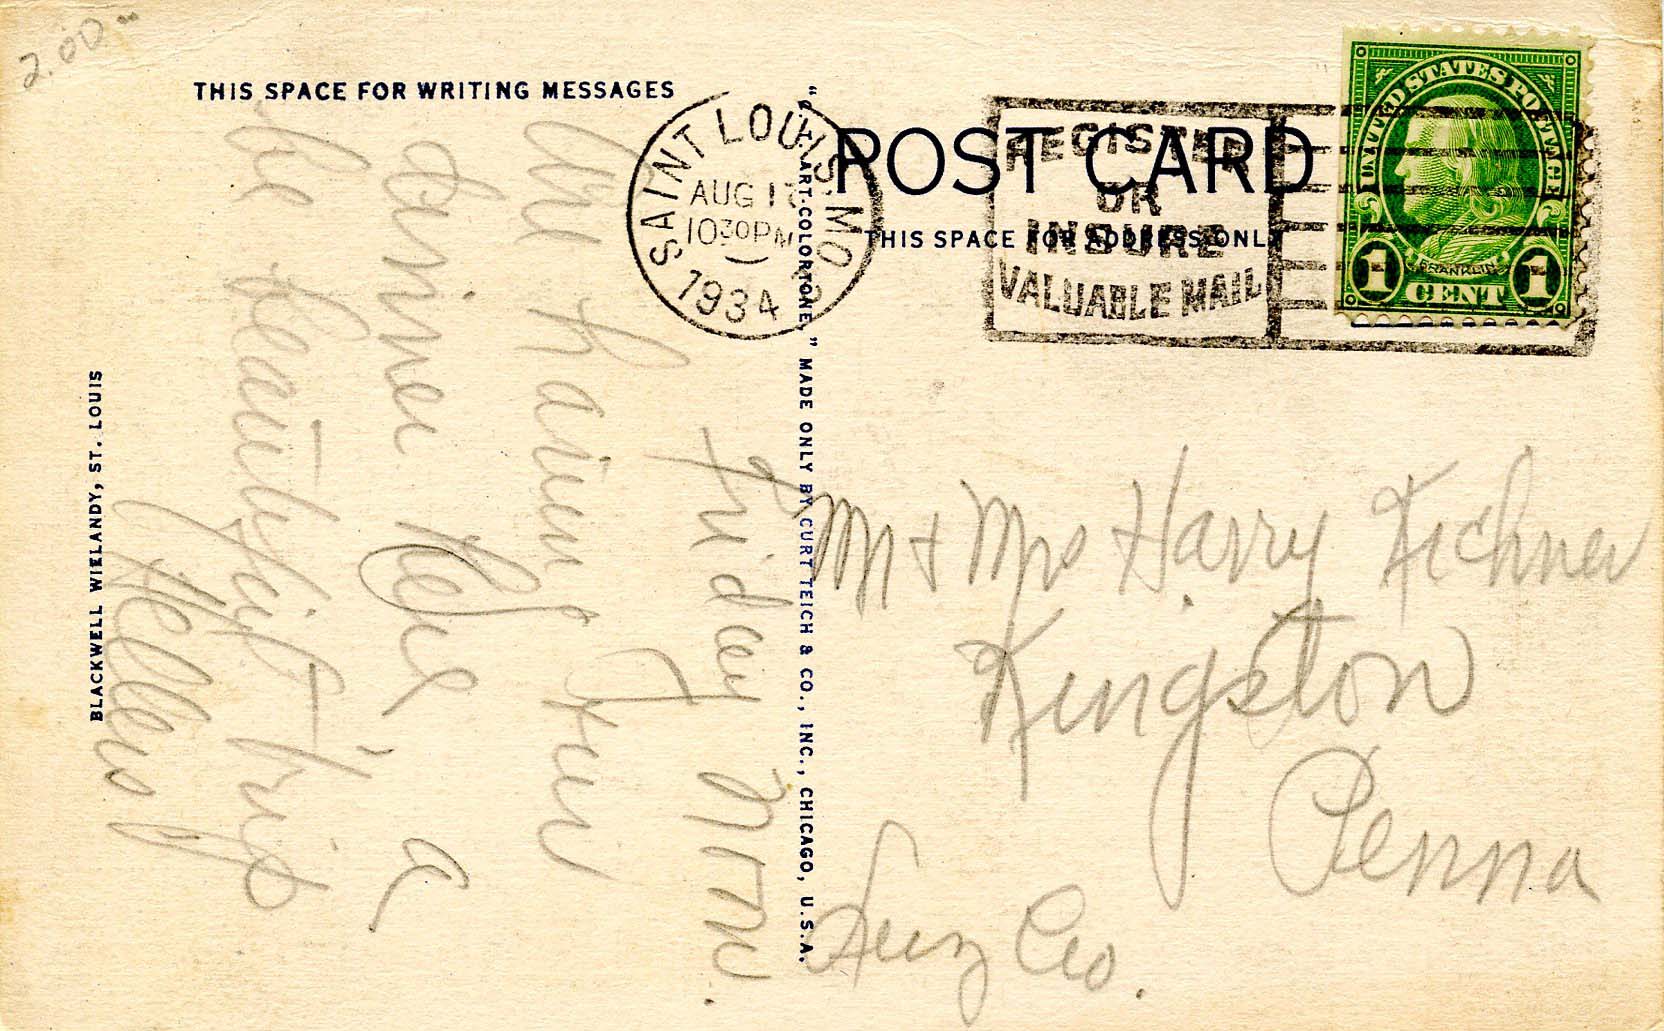 2.00
THIS SPACE FOR WRITING MESSAGES
Friday Morn.
We having fun
down here. a
be beautiful trip
Hellen
BLACKWELL WIELANDY, ST. LOUIS
"C.T. ART-COLORTONE" MADE ONLY BY CURT TEICH & CO., INC., CHICAGO, U.S.A.
SAINT LOUIS, MO.
AUG 17
10 30 PM
1934
POST CARD
THIS SPACE FOR ADDRESS ONLY
REGISTER
OR
INSURE
VALUABLE MAIL
UNITED STATES POSTAGE
FRANKLIN
1 CENT 1
Mr + Mrs Harry Kichner
Kingston
Penna
Luz Co.